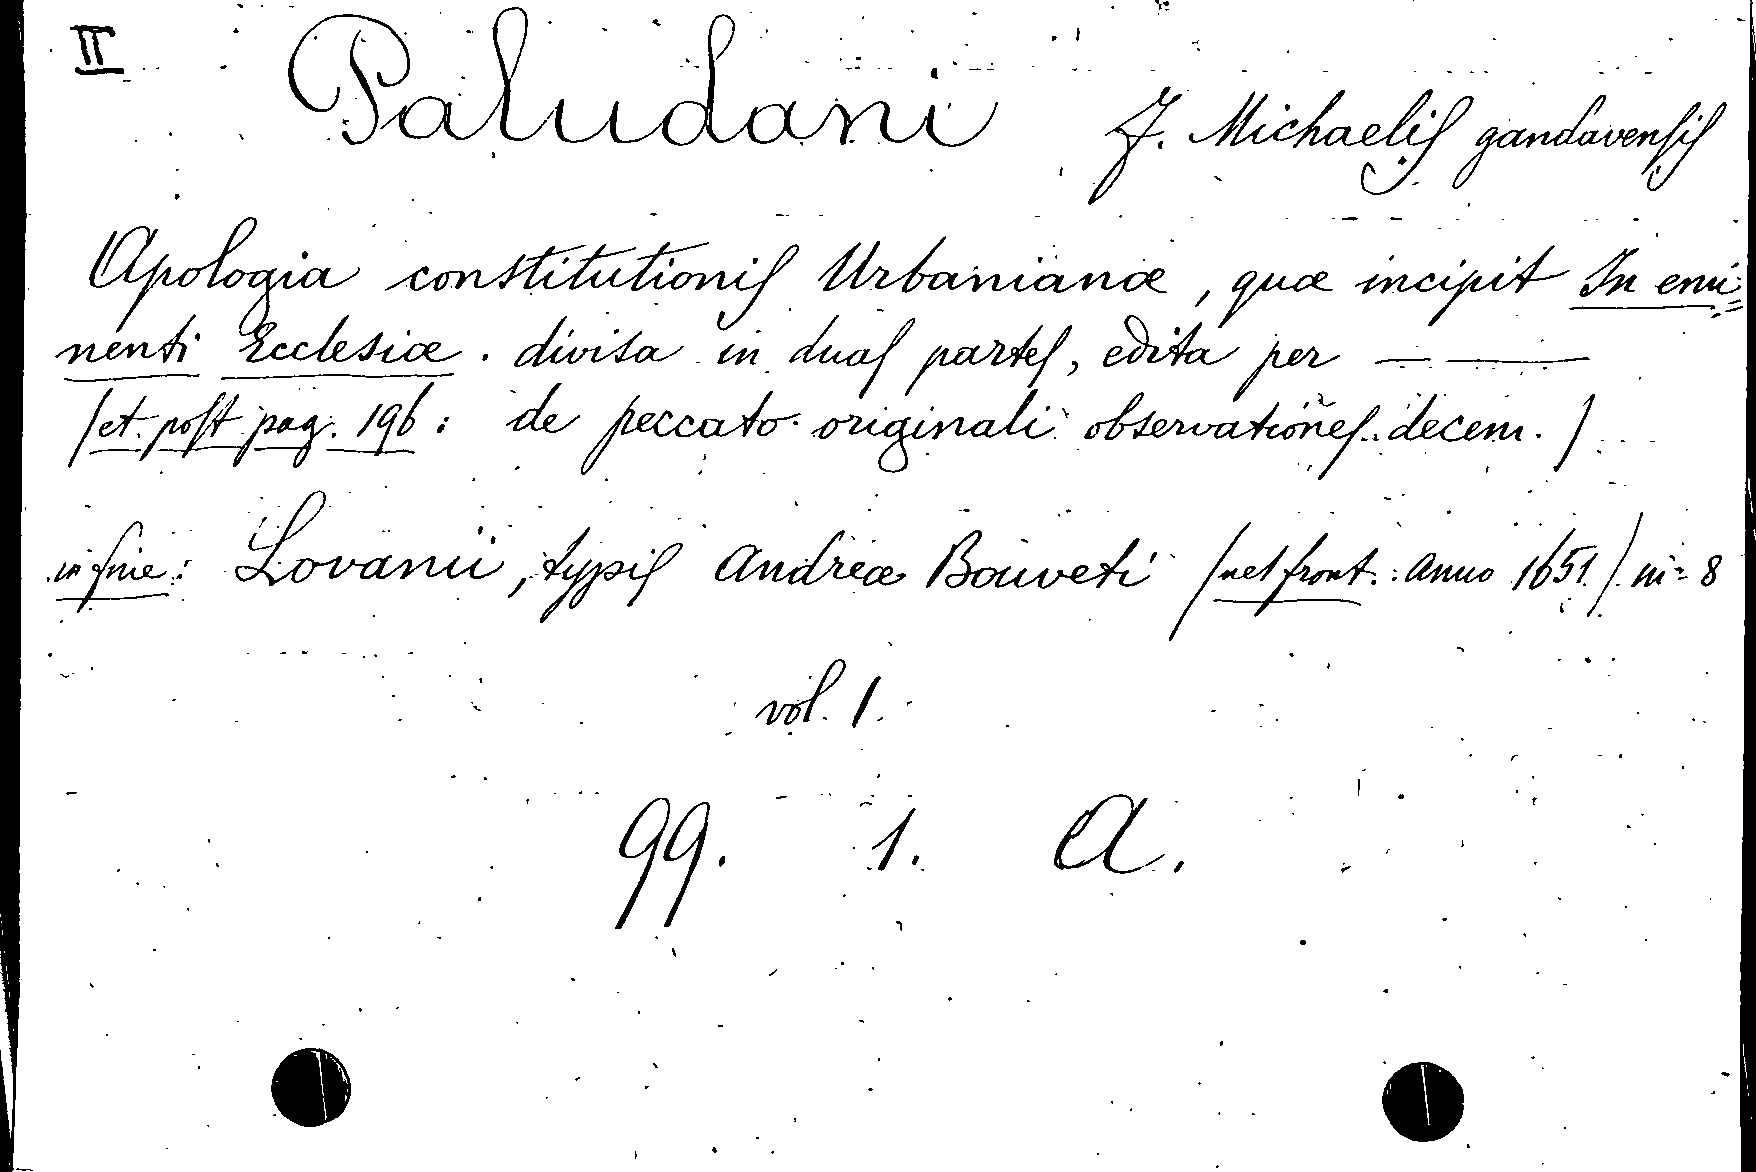 II Paludani F. Michaelis gandavensis
Apologia constitutionis Urbanianæ, quæ incipit In emi=
nenti Ecclesiæ. divisa in duas partes, edita per — ——
(et post pag. 196: de peccato originali observationes decem.)
in fine: Lovanii, typis Andreæ Bouveti (nel front.: anno 1651.) in= 8
vol. 1.
99. 1. A.